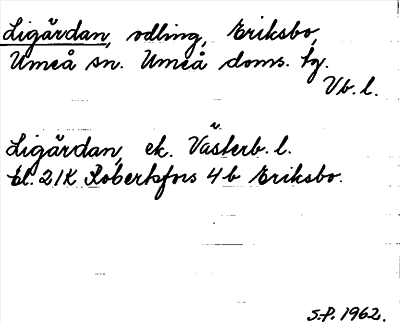 Ligärdan, odling, Eriksbo,
Umeå sn. Umeå doms. tg.
Vb. l.
Ligärdan, ek. Västerb. l.
El. 21K Robertsfors 4b Eriksbo.
S.P. 1962.